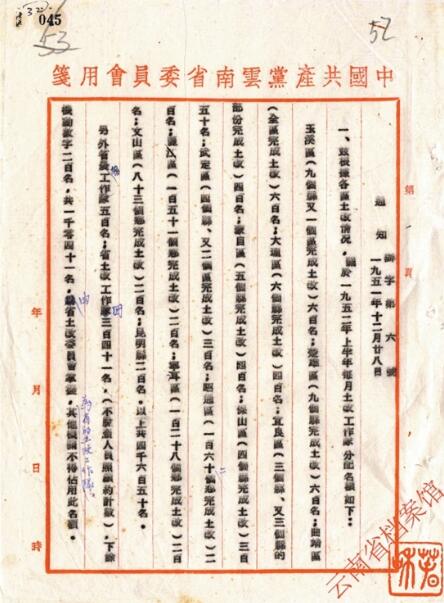 045
53
52
中國共產黨雲南省委員會用箋
第 頁
通知 辦字第六號
一九五一年十二月廿八日
一、茲根據各區土改情況,關於一九五二年上半年每月土改工作隊分配名額如下:
玉溪區(九個縣又一個區完成土改)六百名;楚雄區(九個縣完成土改)六百名;曲靖區
(全區完成土改)六百名;大理區(六個縣完成土改)四百名;宜良區(三個縣、又三個縣的
部份完成土改)四百名;蒙自區(五個縣完成土改)四百名;保山區(四個縣完成土改)三百
五十名;武定區(四個縣、又二個區完成土改)三百名;昭通區(一百六十二個鄉完成土改)二
百名;麗江區(一百五十一個鄉完成土改)二百名;寧洱區(一百二十八個鄉完成土改)二百
名;文山區(八十三個鄉完成土改)二百名;昆明縣二百名。以上共四千六百五十名。
另外省級工作隊五百名;省土改工作團三百四十一名,(不脫產人員照額約計數),下餘
機動數字二百名,共一千零四十一名,由省土改委員會掌握,其他機關不得佔用此名額。
年 月 日 時
云南省档案馆